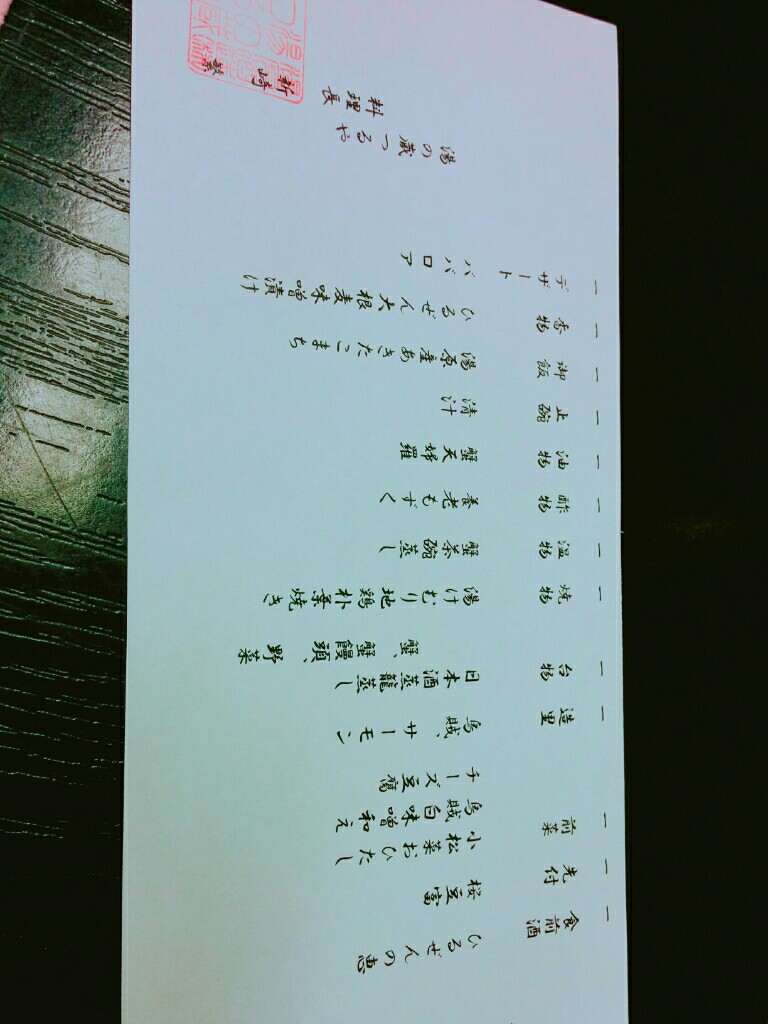 一 食前酒
ひるぜんの恵
一 先付
桜豆富
一 前菜
小松菜おひたし
烏賊白味噌和え
チーズ豆腐
一 造里
烏賊、サーモン
一 台物
日本酒蒸籠蒸し
蟹、蟹饅頭、野菜
一 焼物
湯けむり地鶏朴葉焼き
一 温物
蟹茶碗蒸し
一 酢物
養老もずく
一 油物
蟹天婦羅
一 止碗
清汁
一 御飯
湯原産あきたこまち
一 香物
ひるぜん大根麦味噌漬け
一 デザート
ババロア
湯の蔵つるや
料理長
新崎 繁